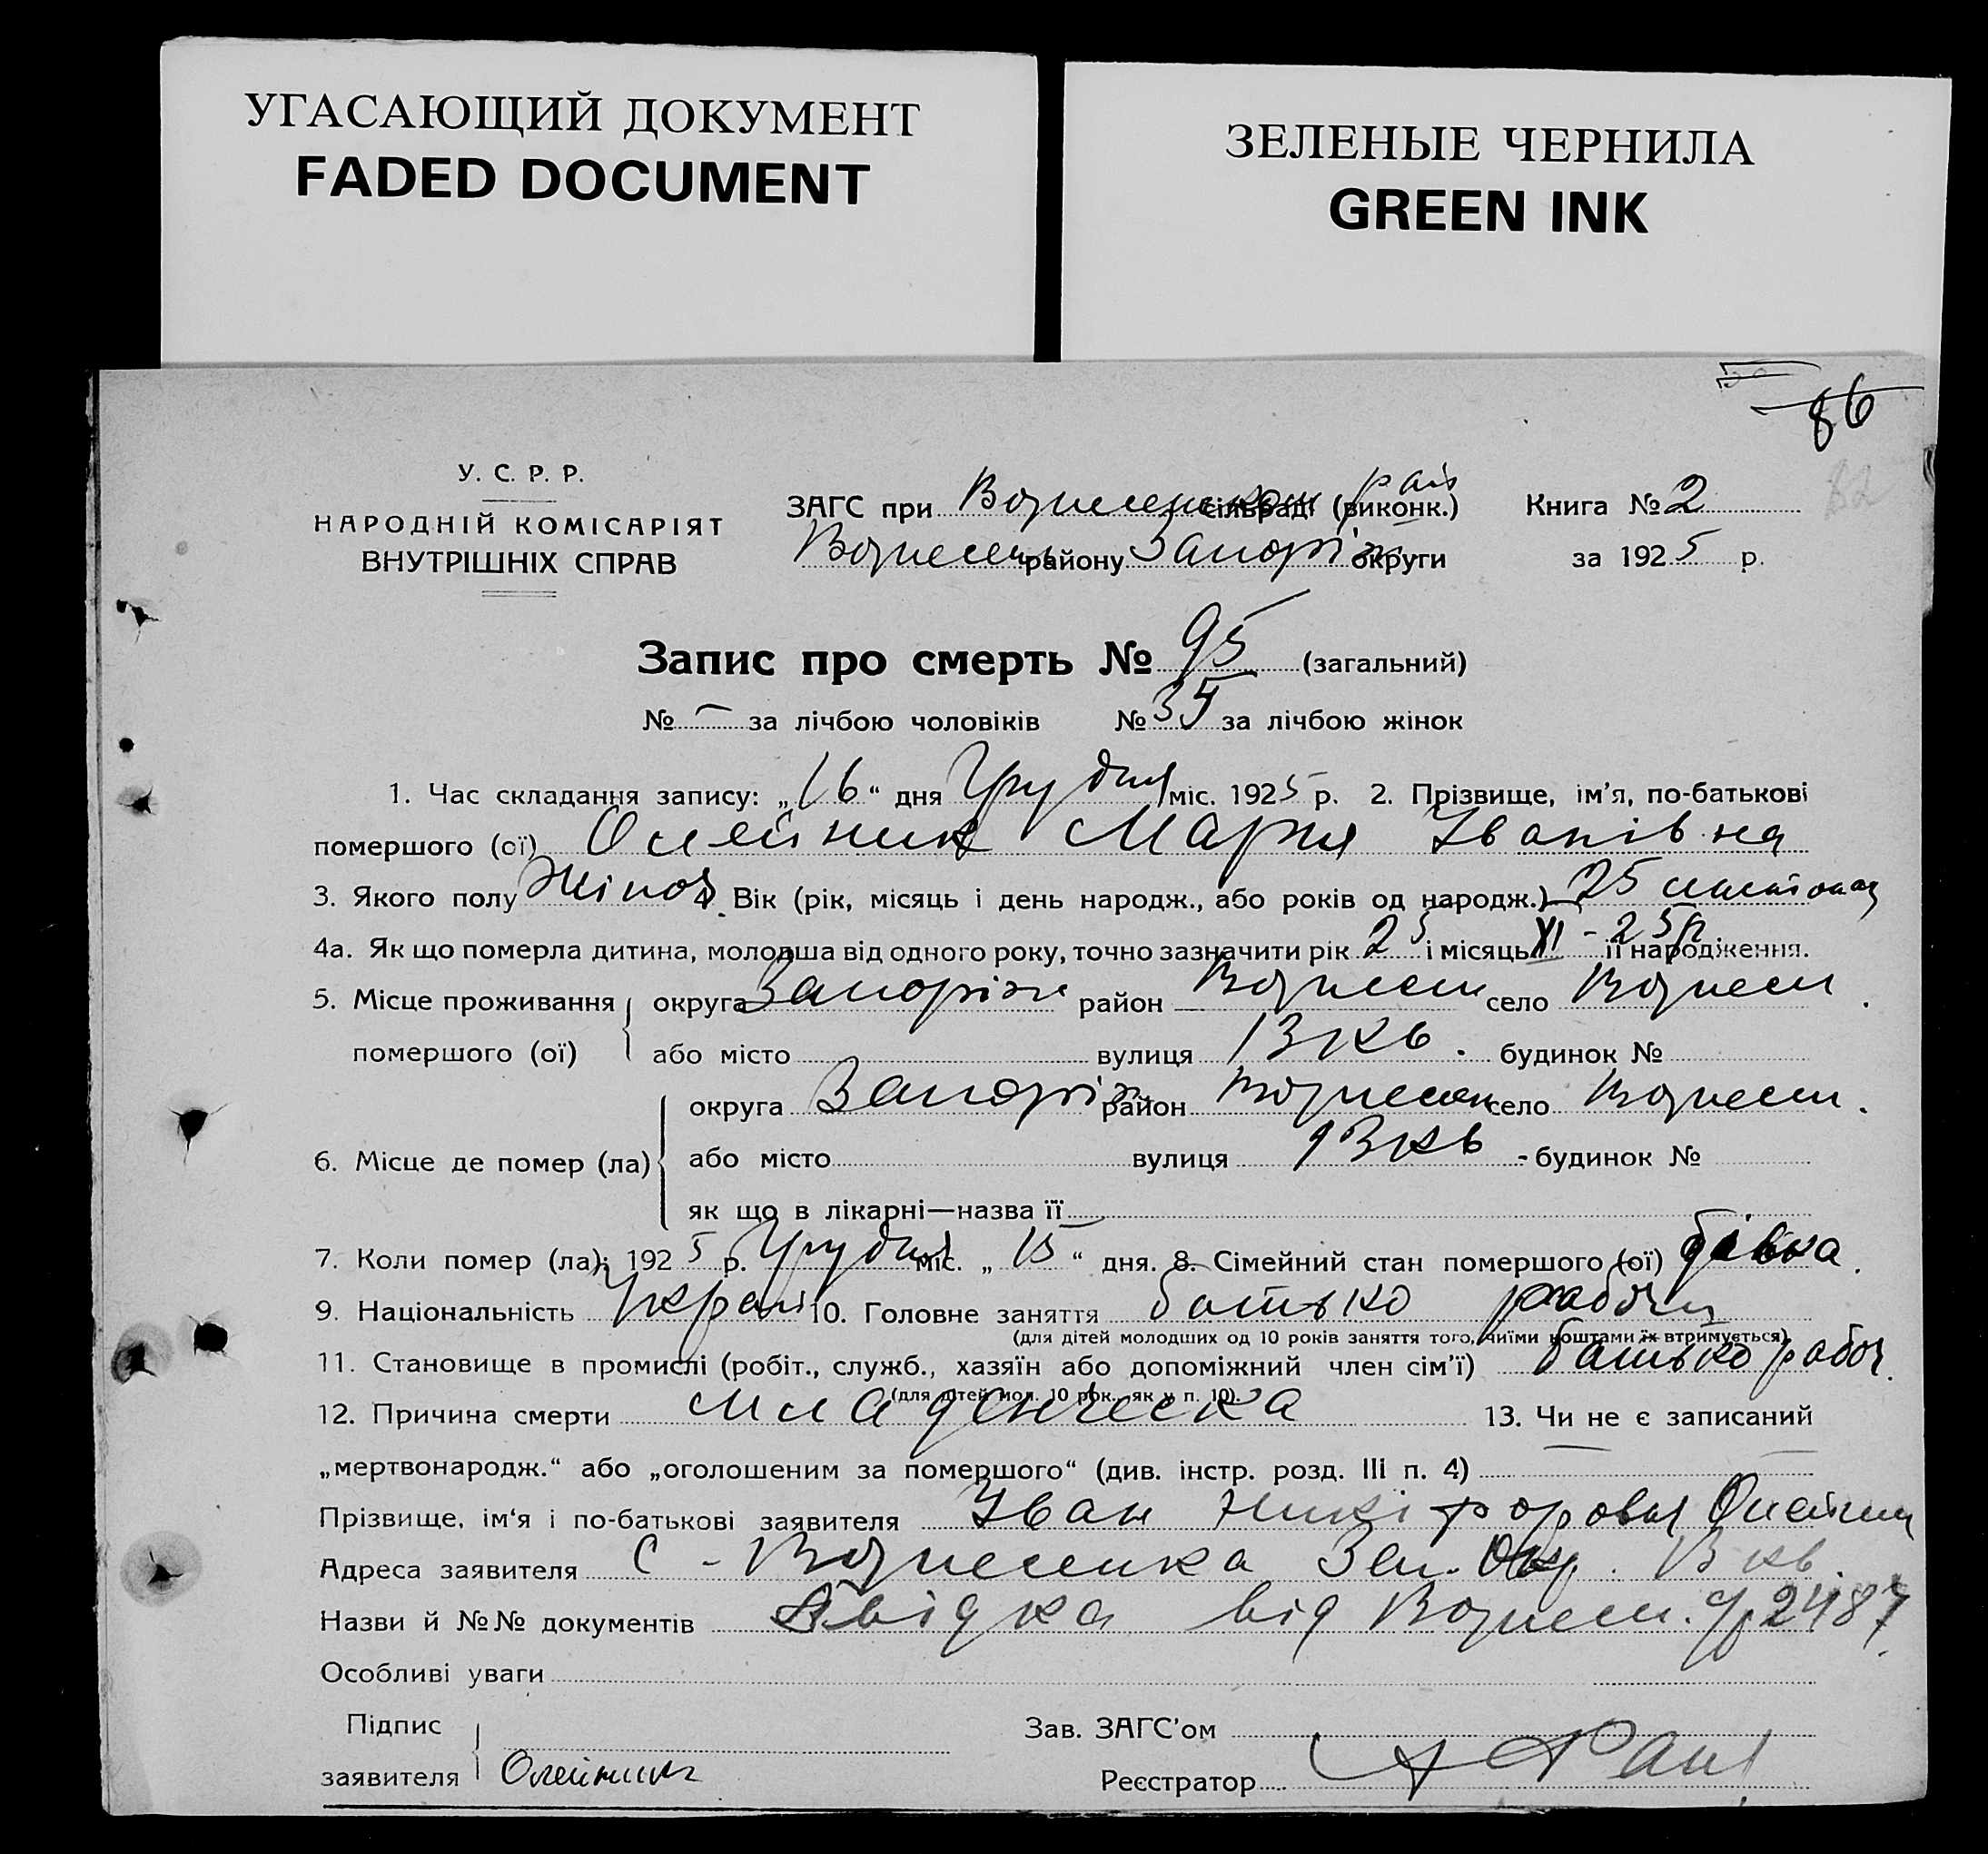 УГАСАЮЩИЙ ДОКУМЕНТ
FADED DOCUMENT
ЗЕЛЕНЫЕ ЧЕРНИЛА
GREEN INK
86
82
У. С. Р. Р.
НАРОДНІЙ КОМІСАРІЯТ
ВНУТРІШНІХ СПРАВ
ЗАГС при Вознесенском сільраді (виконк.) рай Книга № 2
Вознесен району Запоріж округи за 1925 р.
Запис про смерть № 95 (загальний)
№ — за лічбою чоловіків № 35 за лічбою жінок
1. Час складання запису: „16“ дня Грудня міс. 1925 р. 2. Прізвище, ім'я, по-батькові
помершого (ої) Олейник Мария Іванівна
3. Якого полу Жіноч 4. Вік (рік, місяць і день народж., або років од народж.) 25 листопад
4а. Як що померла дитина, молодша від одного року, точно зазначити рік 25 і місяць XI - 25 р її народження.
5. Місце проживання округа Запоріж район Вознесен село Вознесен.
помершого (ої) або місто вулиця 13 кв. будинок №
округа Запоріж район Вознесен село Вознесен.
6. Місце де помер (ла) або місто вулиця 13 кв - будинок №
як що в лікарні—назва її —
7. Коли помер (ла): 1925 р. Грудня міс. „15“ дня. 8. Сімейний стан помершого (ої) дівка.
9. Національність Украї 10. Головне заняття батько рабоч
(для дітей молодших од 10 років заняття того, чиїми коштами їх втримується)
11. Становище в промислі (робіт., служб., хазяїн або допоміжний член сім'ї) батько рабоч.
(для дітей мол. 10 рок., як у п. 10).
12. Причина смерти младенческа 13. Чи не є записаний
„мертвонародж.“ або „оголошеним за помершого“ (див. інстр. розд. III п. 4)
Прізвище, ім'я і по-батькові заявителя Іван Никіфорович Олейник
Адреса заявителя с - Вознесенка Зап. Окр. 13 кв.
Назви й №№ документів Свідка від Вознесен. 2487
Особливі уваги
Підпис
заявителя Олейник
Зав. ЗАГС'ом
Реєстратор